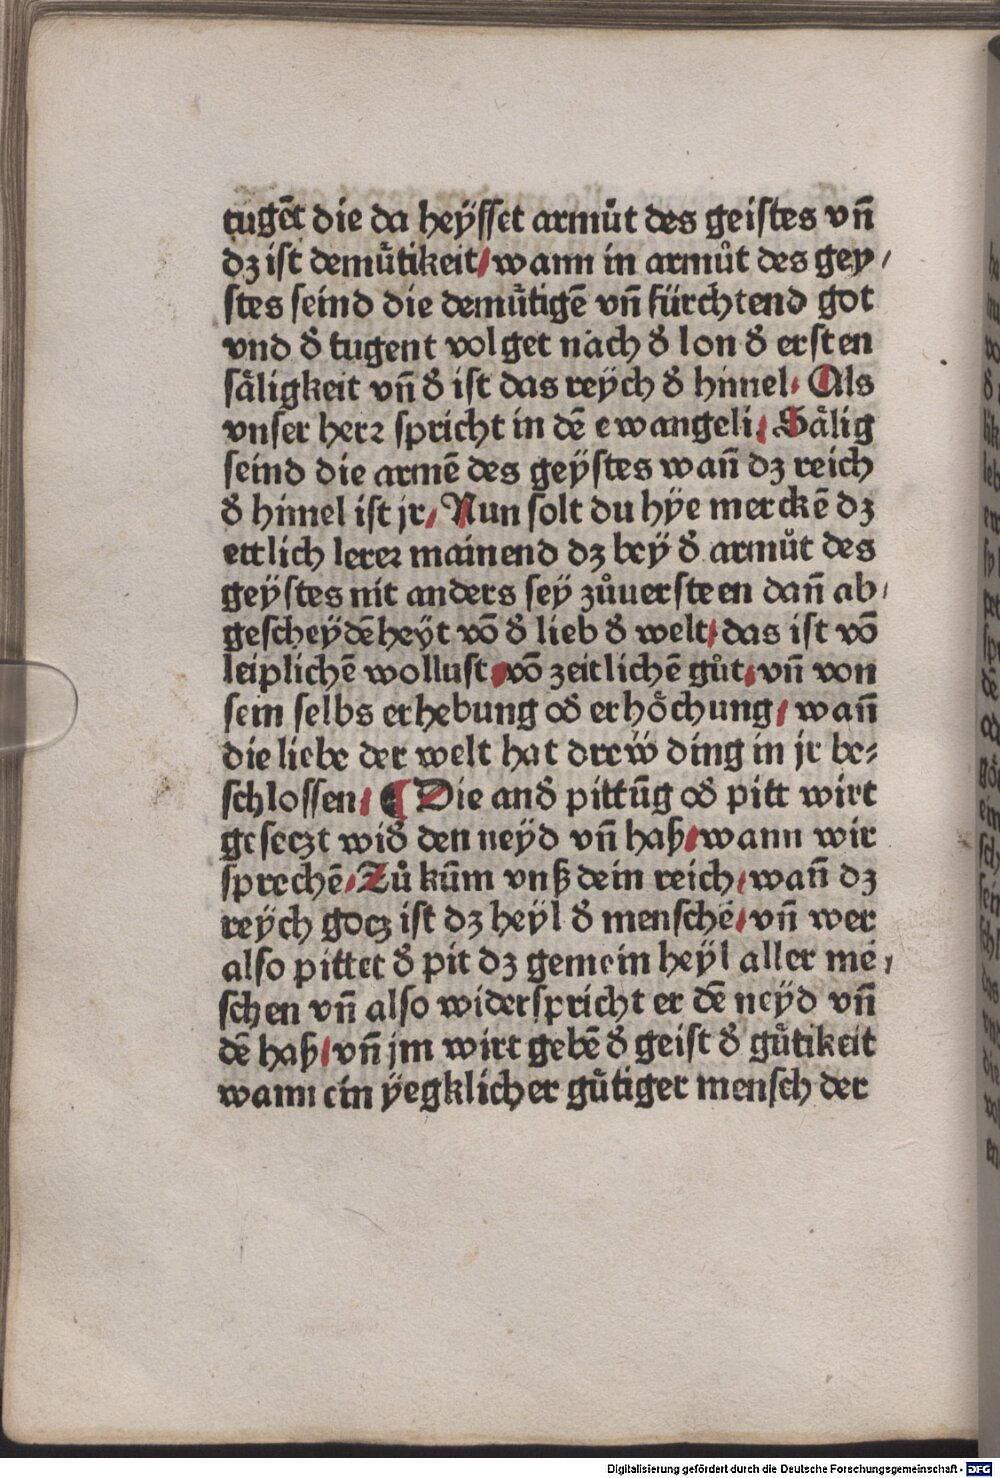 tugēt die da heÿsset armůt des geistes vñ
dʒ ist demuͤtikeit/ wann in armůt des gey/
stes seind die demuͤtigē vñ fürchtend got
vnd đ tugent volget nach đ lon đ ersten
saͤligkeit vñ đ ist das reÿch đ himel. Als
vnser herꝛ spricht in dē ewangeli. Saͤlig
seind die armē des geÿstes wañ dʒ reich
đ himel ist jr/ Nun solt du hÿe merckē dʒ
ettlich lereꝛ mainend dʒ beÿ đ armůt des
geÿstes nit anders seÿ zůuersteen dañ ab/
gescheÿdēheÿt vō đ lieb đ welt/ das ist vō
leiplichē wollust/ vō zeitlichē gůt/ vñ von
sein selbs erhebung ođ erhoͤchung/ wañ
die liebe der welt hat dreẅ ding in jr be⸗
schlossen/ ¶ Die anđ pittūg ođ pitt wirt
geseczt wiđ den neÿd vñ haß/ wann wir
sprechē/ Zů kūm vnß dein reich/ wañ dʒ
reÿch gocz ist dʒ heÿl đ menschē/ vñ wer
also pittet đ pit dʒ gemein heÿl aller mē/
schen vñ also widerspricht er dē neÿd vñ
dē haß/ vñ jm wirt gebē đ geist đ guͤtikeit
wann ein ÿegklicher guͤtiger mensch der
Digitalisierung gefördert durch die Deutsche Forschungsgemeinschaft - DFG